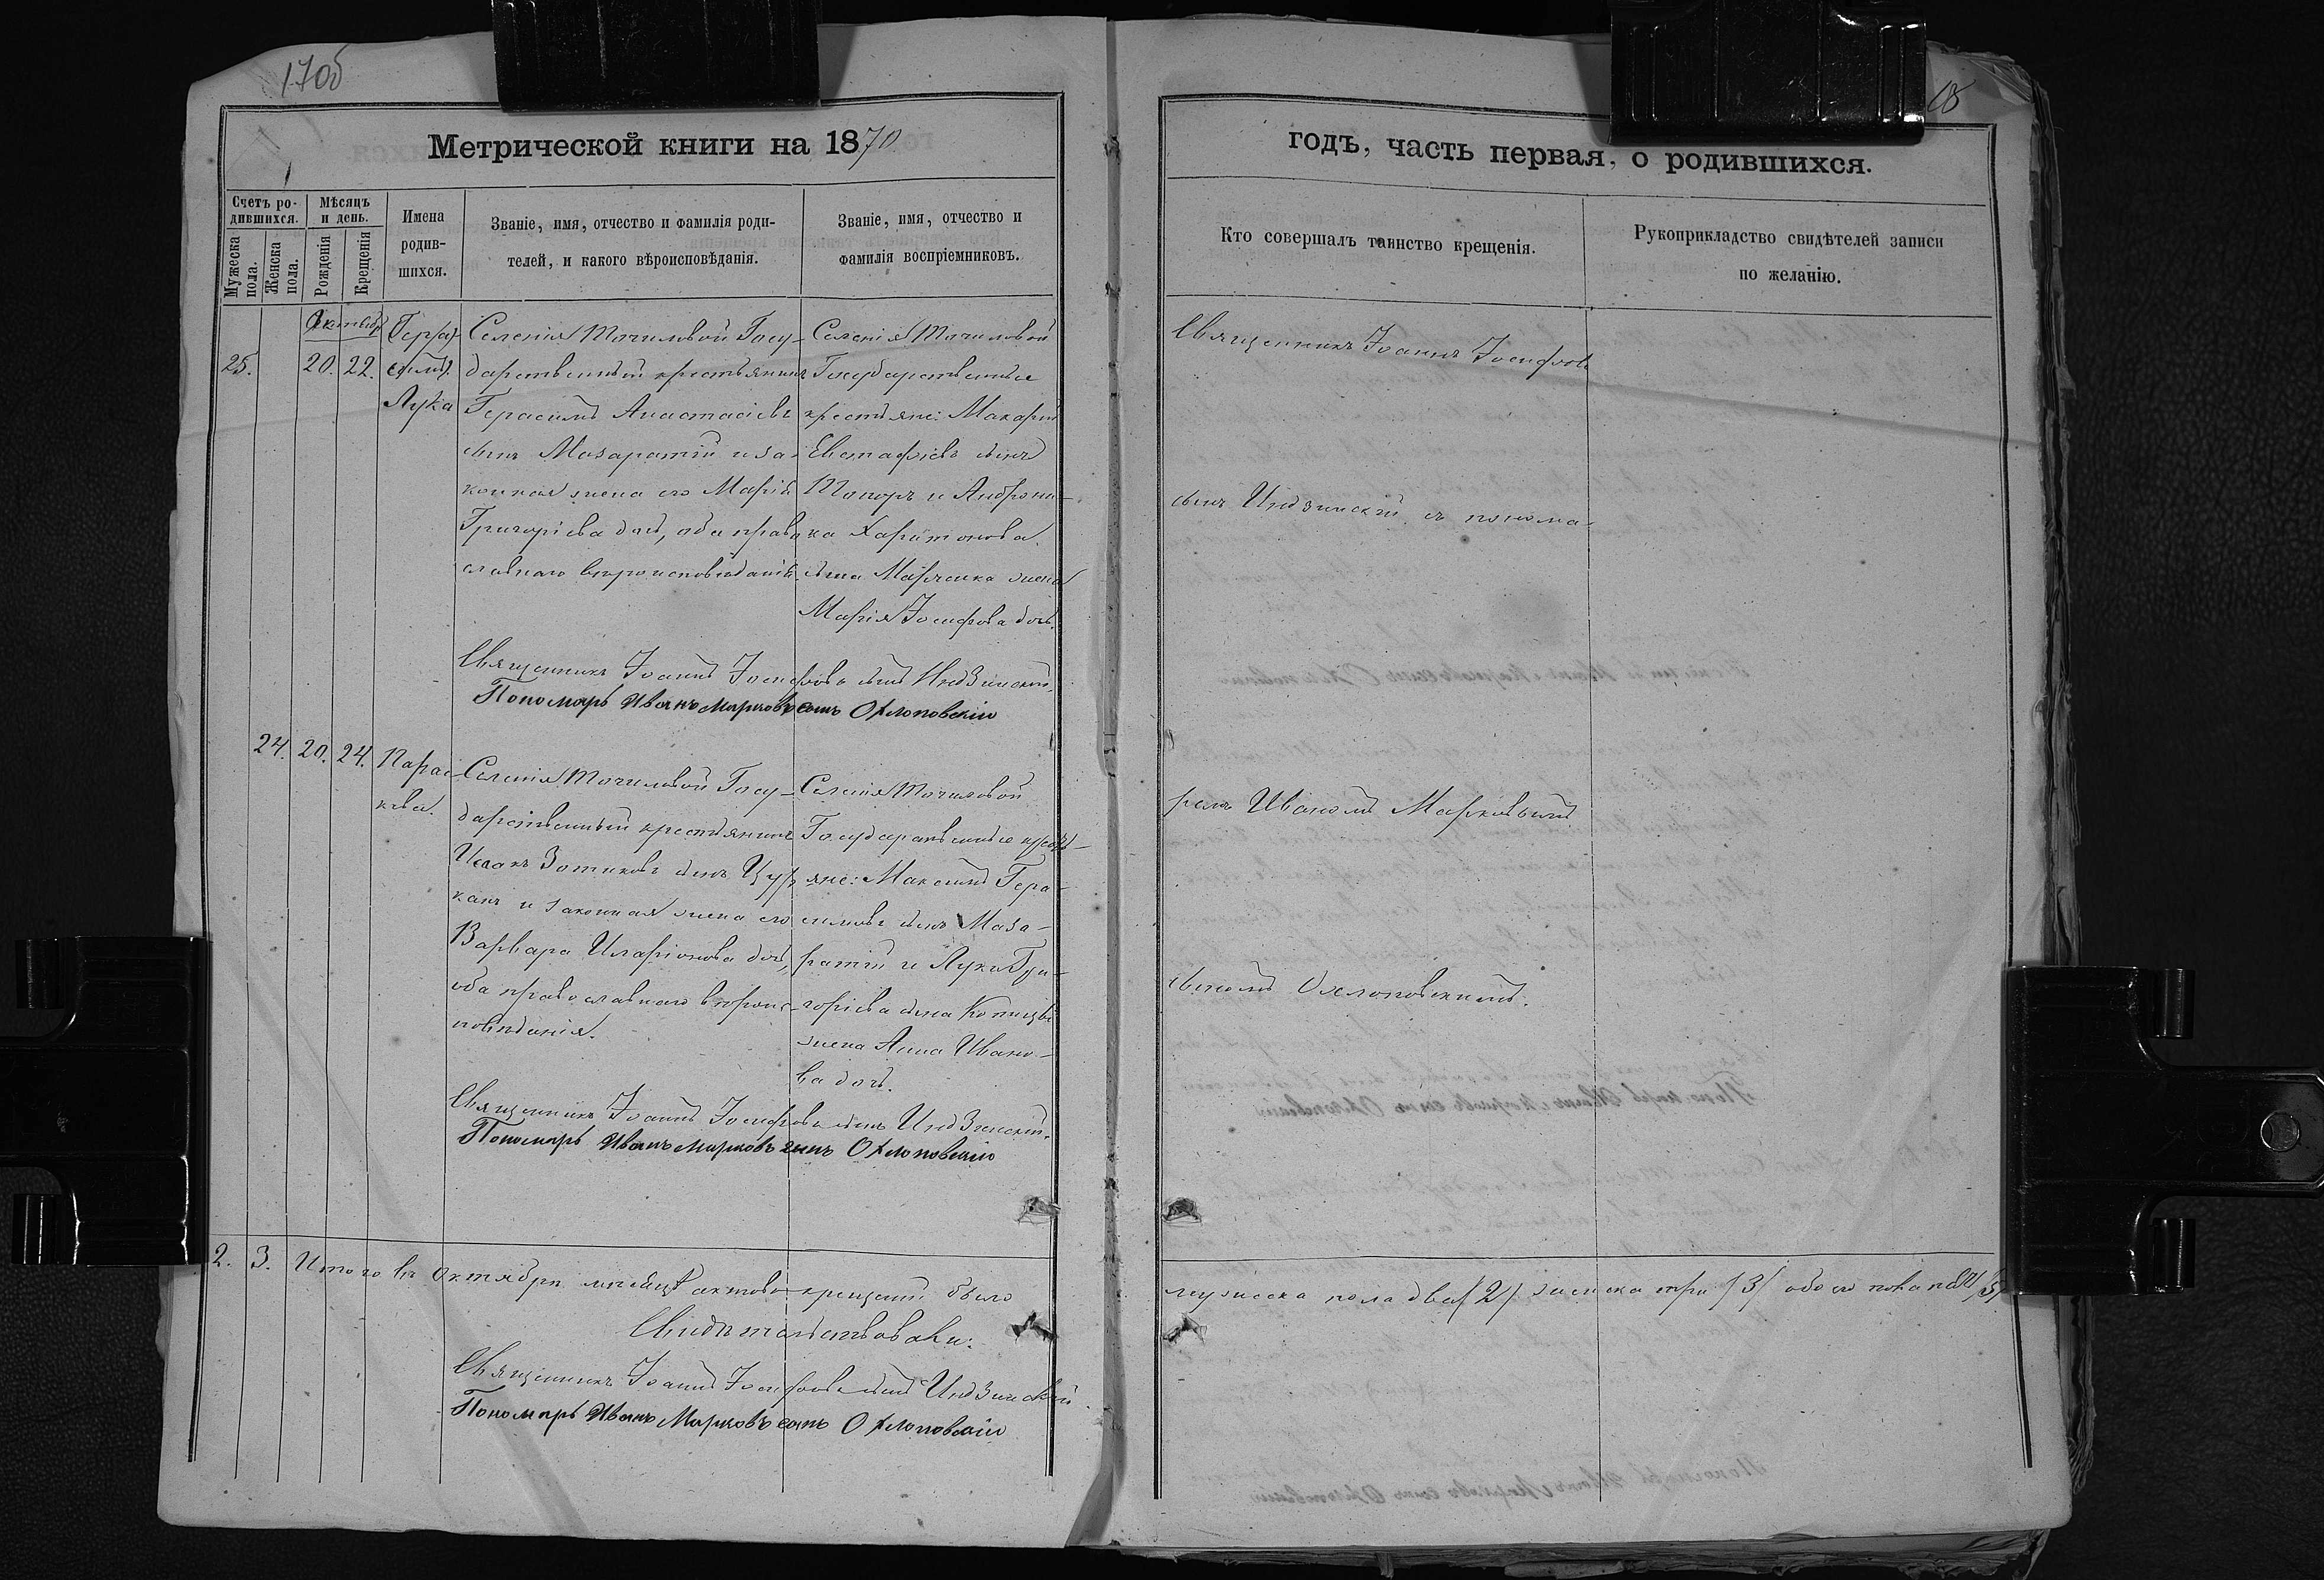 170б
18
Метрической книги на 1870
годъ, часть первая, о родившихся.
Счетъ ро-
дившихся.
Мѣсяцъ
и день.
Мужеска
пола.
Женска
пола.
Рожденія
Крещенія
Имена
родив-
шихся.
Званіе, имя, отчество и фамилія роди-
телей, и какого вѣроисповѣданія.
Званіе, имя, отчество и
фамилія воспріемниковъ.
Кто совершалъ таинство крещенія.
Рукоприкладство свидѣтелей записи
по желанію.
Октябр
25.
20. 22.
Лука
Селенія Точиловой Госу-
дарственный крестьянинъ
Герасимъ Анастасіевъ
сынъ Мазаратій и за-
конная жена его Марія
Григорієва доч, оба право
славнаго вѣроисповѣданія
Селенія Точиловой
Государственные
крестьяне: Макарій
Евстафіевъ сынъ
Топоръ и Андрони-
ка Харитонова
сына жена
Марія Іосифова дочь.
Священникъ Іоаннъ Іосифовъ сынъ Индзинскій
Пономарь Иванъ Марковъ сынъ Охлоповскій
24. 20. 24.
Парас-
кева.
Селенія Точиловой Госу-
дарственный крестьянинъ
Исакъ Зотиковъ сынъ Цур
канъ и законная жена его
Варвара Иларіонова доч,
оба православнаго вѣроис-
повѣданія.
Селенія Точиловой
Государственные крест-
яне: Максимъ Гера-
симовъ сынъ Маза-
ратій и Луки Гри-
горіева сына
жена Анна Ивано-
ва дочь.
Священникъ Іоаннъ Іосифовъ сынъ Индзинскій.
Пономарь Иванъ Марковъ сынъ Охлоповскій
Священникъ Іоаннъ Іосифовъ
сынъ Индзинскій съ понома-
ремъ Иваномъ Марковымъ
сыномъ Охлоповскимъ.
2. 3. Итого въ Октябрѣ мѣсяцѣ актовъ крещеній было
мужеска пола два /2/ женска три /3/ обоего пола
Свидѣтельствовали:
Священникъ Іоаннъ Іосифовъ сынъ Индзинскій
Пономарь Иванъ Марковъ сынъ Охлоповскій